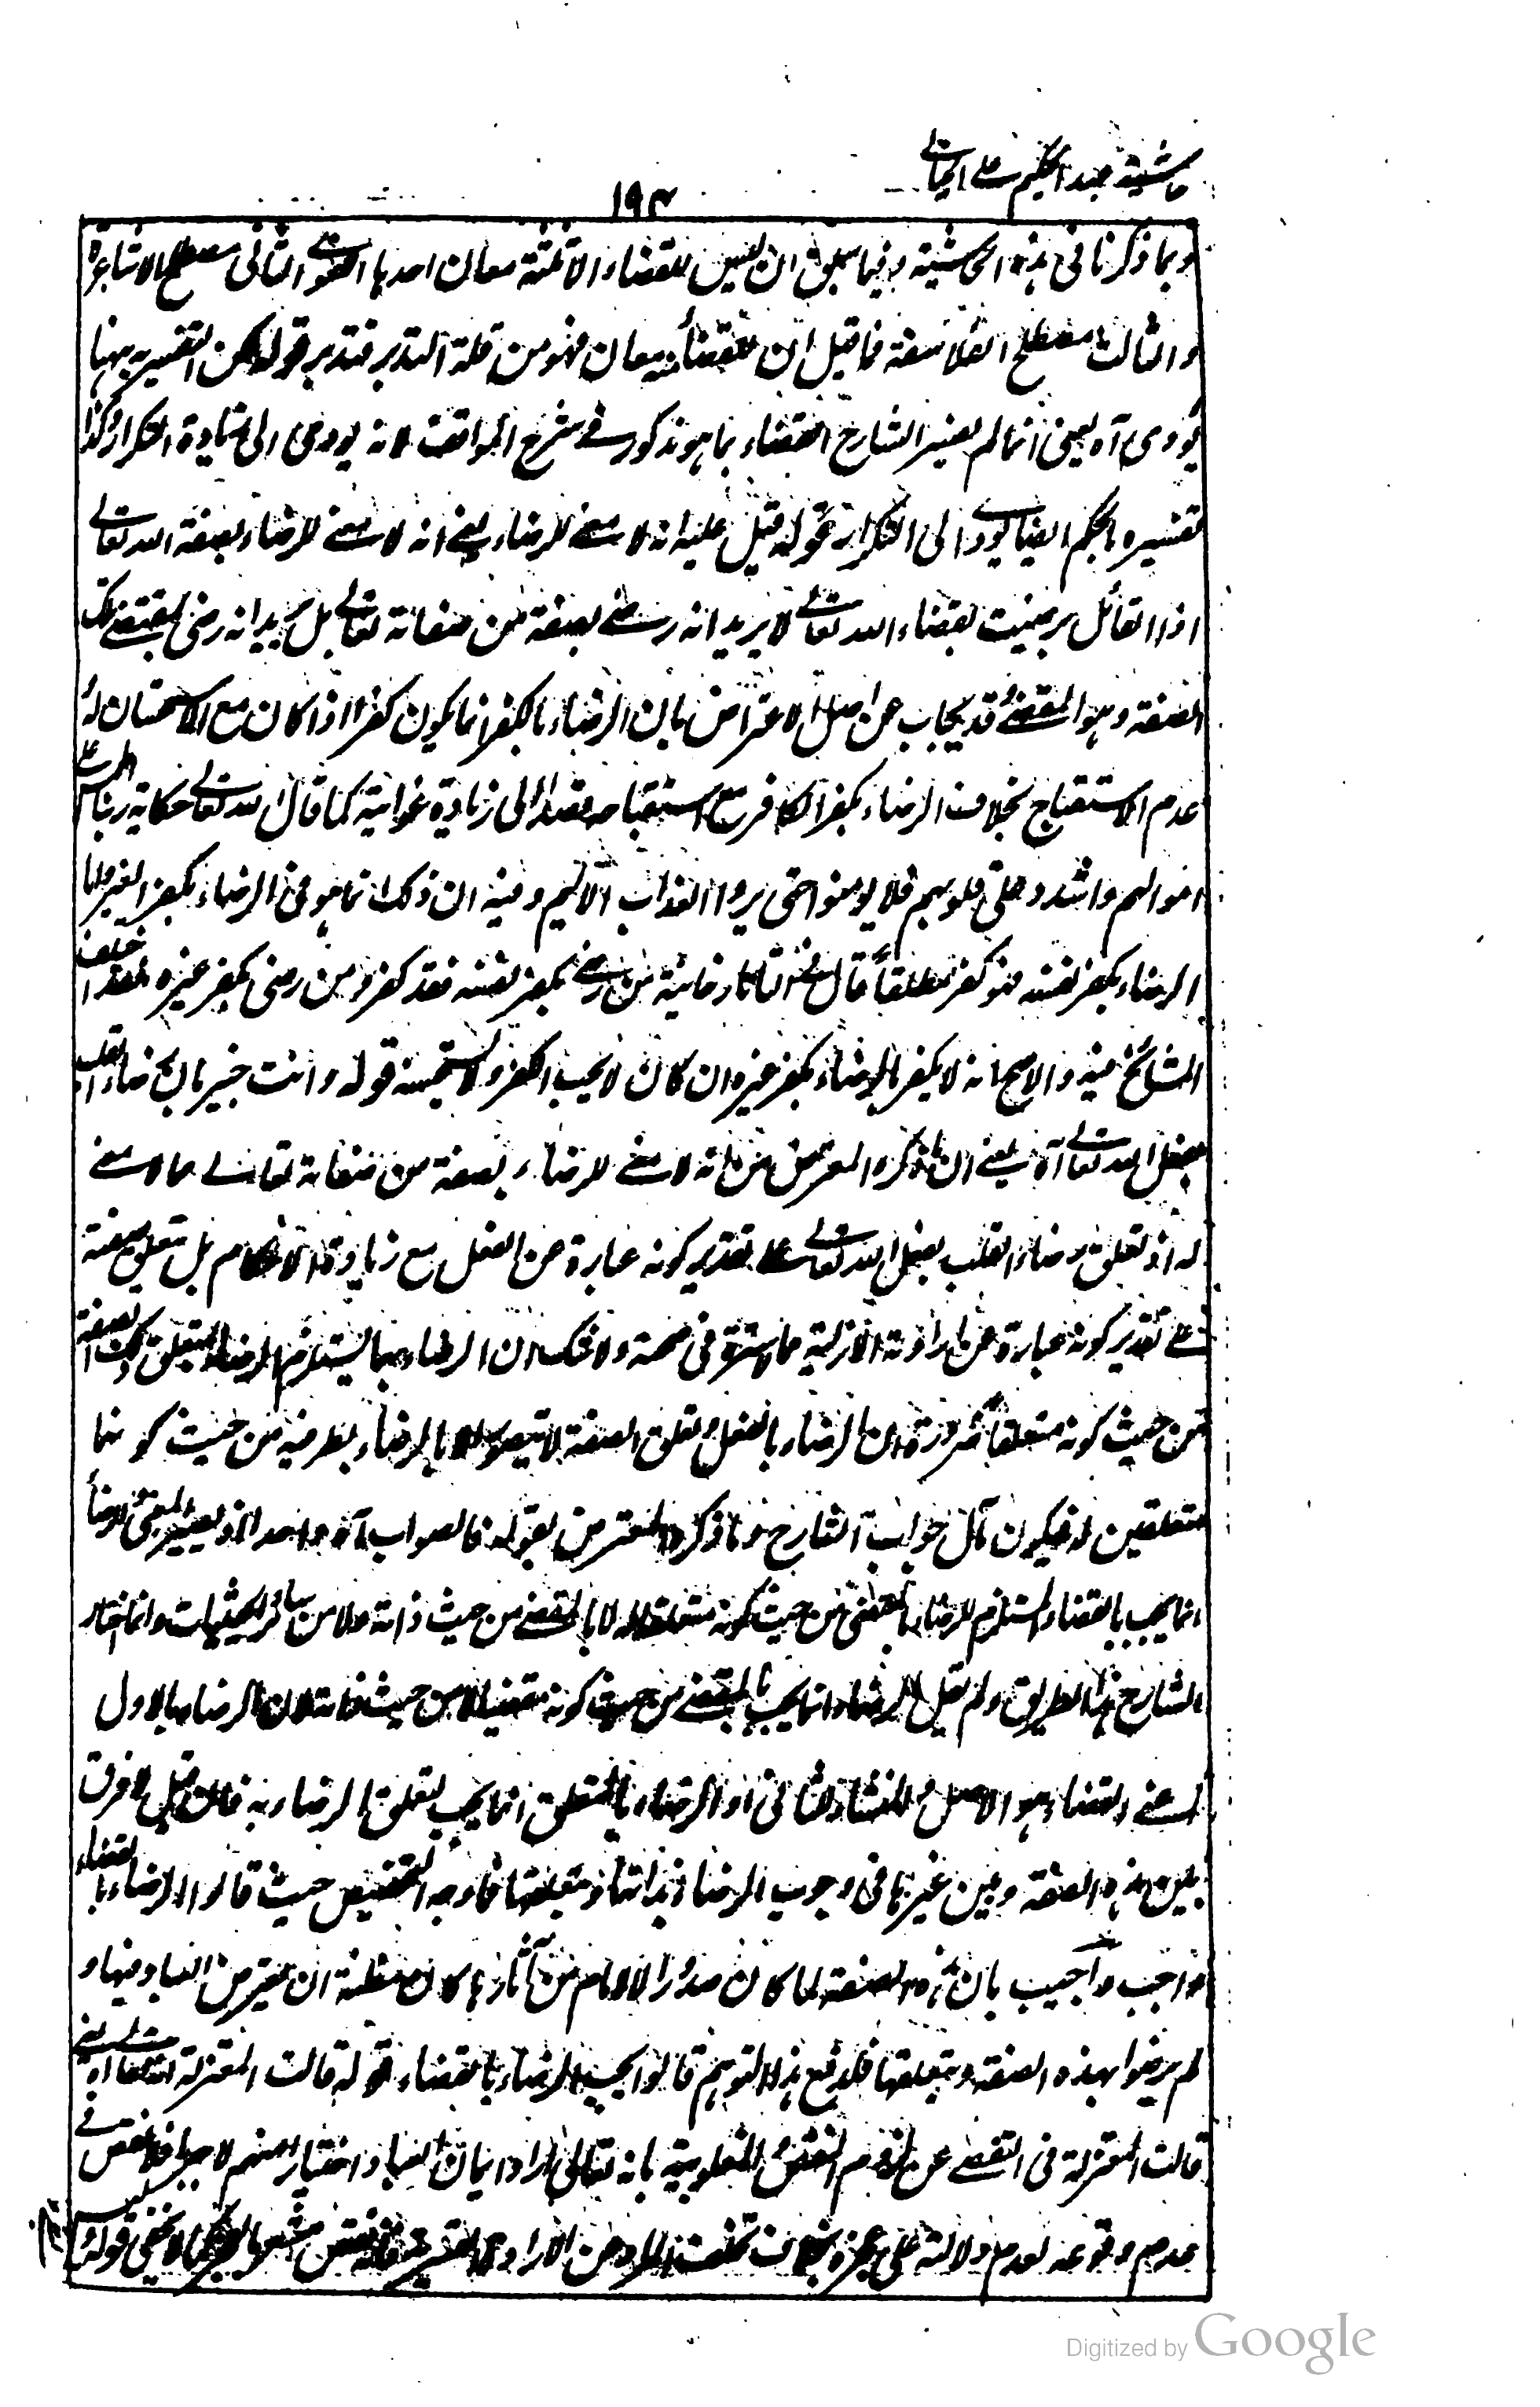 حاشية عبد الحكيم على الخيالى
١٩٣
وبما ذكرنا فى هذه الحاشية وفيما سبق ان ليس للقضاء الا ثلثة معان احدها اللغوى الثانى مصطلح الاشاعرة
والثالث مصطلح الفلاسفة فما قيل ان للقضاء معان فهو من قلة التدبر فتدبر قوله لكن التفسير به ههنا
يؤدى آه يعنى انما لم يفسر الشارح القضاء بما هو مذكور فى شرح المواقف لانه يؤدى الى زيادة التكرار وكذا
تفسيره بالحكم ايضا يؤدى الى التكرار قوله قيل عليه انه لا معنى للرضاء يعنى انه لا معنى للرضاء بصفة الله تعالى
اذ القائل رضيت بقضاء الله تعالى لا يريد انه رضى بصفة من صفاته تعالى بل يريد انه رضى بمقتضى تلك
الصفة وهو المقضى وقد يجاب عن اصل الاعتراض بان الرضاء بالكفر انما يكون كفرا اذا كان مع الاستحسان له
عدم الاستقباح بخلاف الرضاء بكفر الكافر مع استقباحه قصدا الى زيادة عذابه كما قال الله تعالى حكاية ربنا اطمس على
اموالهم واشدد على قلوبهم فلا يؤمنوا حتى يروا العذاب الاليم وفيه ان ذلك انما هو فى الرضاء بكفر الغير واما
الرضاء بكفر نفسه فهو كفر مطلقا قال فى التاتارخانية من رضى بكفر نفسه فقد كفر ومن رضى بكفر غيره فقد اختلف
المشائخ فيه والاصح انه لا يكفر بالرضاء بكفر غيره ان كان لا يحب الكفر ولا يستحسنه قوله وانت خبير بان رضاء القلب
بفعل الله تعالى آه يعنى ان ما ذكره المعترض من انه لا معنى للرضاء بصفة من صفاته تعالى مما لا معنى
له اذ تعلق رضاء القلب بفعل الله تعالى على تقدير كونه عبارة عن الفعل مع زيادة الاحكام بل تعلق صفته
على تقدير كونه عبارة عن ارادته الازلية مما لا سترة فى صحته ولا شك ان الرضاء بهما يستلزم الرضاء بمتعلق تلك الصفة
من حيث كونه متعلقا ضرورة ان الرضاء بالفعل وتعلق الصفة لا يتصور الا بالرضاء بطرفيه من حيث كونهما
متعلقين له فيكون مآل جواب الشارح وما ذكره المعترض بقوله فالصواب آه واحدا اذ يصير المعنى الرضاء
انما يجب بالقضاء المستلزم للرضاء بالمقضى من حيث كونه متعلقا له لا بالمقضى من حيث ذاته ولا من سائر الحيثيات وانما اختار
الشارح هذا الطريق ولم يقل الرضاء انما يجب بالمقضى من حيث كونه مقضيا لا من حيث ذاته لان الرضاء بالاول
اعنى القضاء هو الاصل والمنشأ للثانى اذ الرضاء بالمتعلق انما يجب لتعلق الرضاء به فان قيل لا فرق
بين هذه الصفة وبين غيرها فى وجوب الرضاء بذاتها وبمتعلقها فما وجه التخصيص حيث قالوا الرضاء بالقضاء
واجب واجيب بان هذه الصفة لما كان صدور الآلام من آثارها كان مظنة ان يعترض العباد فيها و
لم يرضوا بهذه الصفة وبمتعلقها فلدفع هذا التوهم قالوا يجب الرضاء بالقضاء قوله قالت المعتزلة انه تعالى آه يعنى
قالت المعتزلة فى التفصى عن لزوم النقص والمغلوبية بانه تعالى اراد ايمان العباد اختيارا منهم لا جبرا فلا نقص فى
عدم وقوعه لعدم دلالته على عجزه بخلاف تخلف المراد عن الارادة القسرية فانه نقص مشعر بالعجز كما لا يخفى قوله